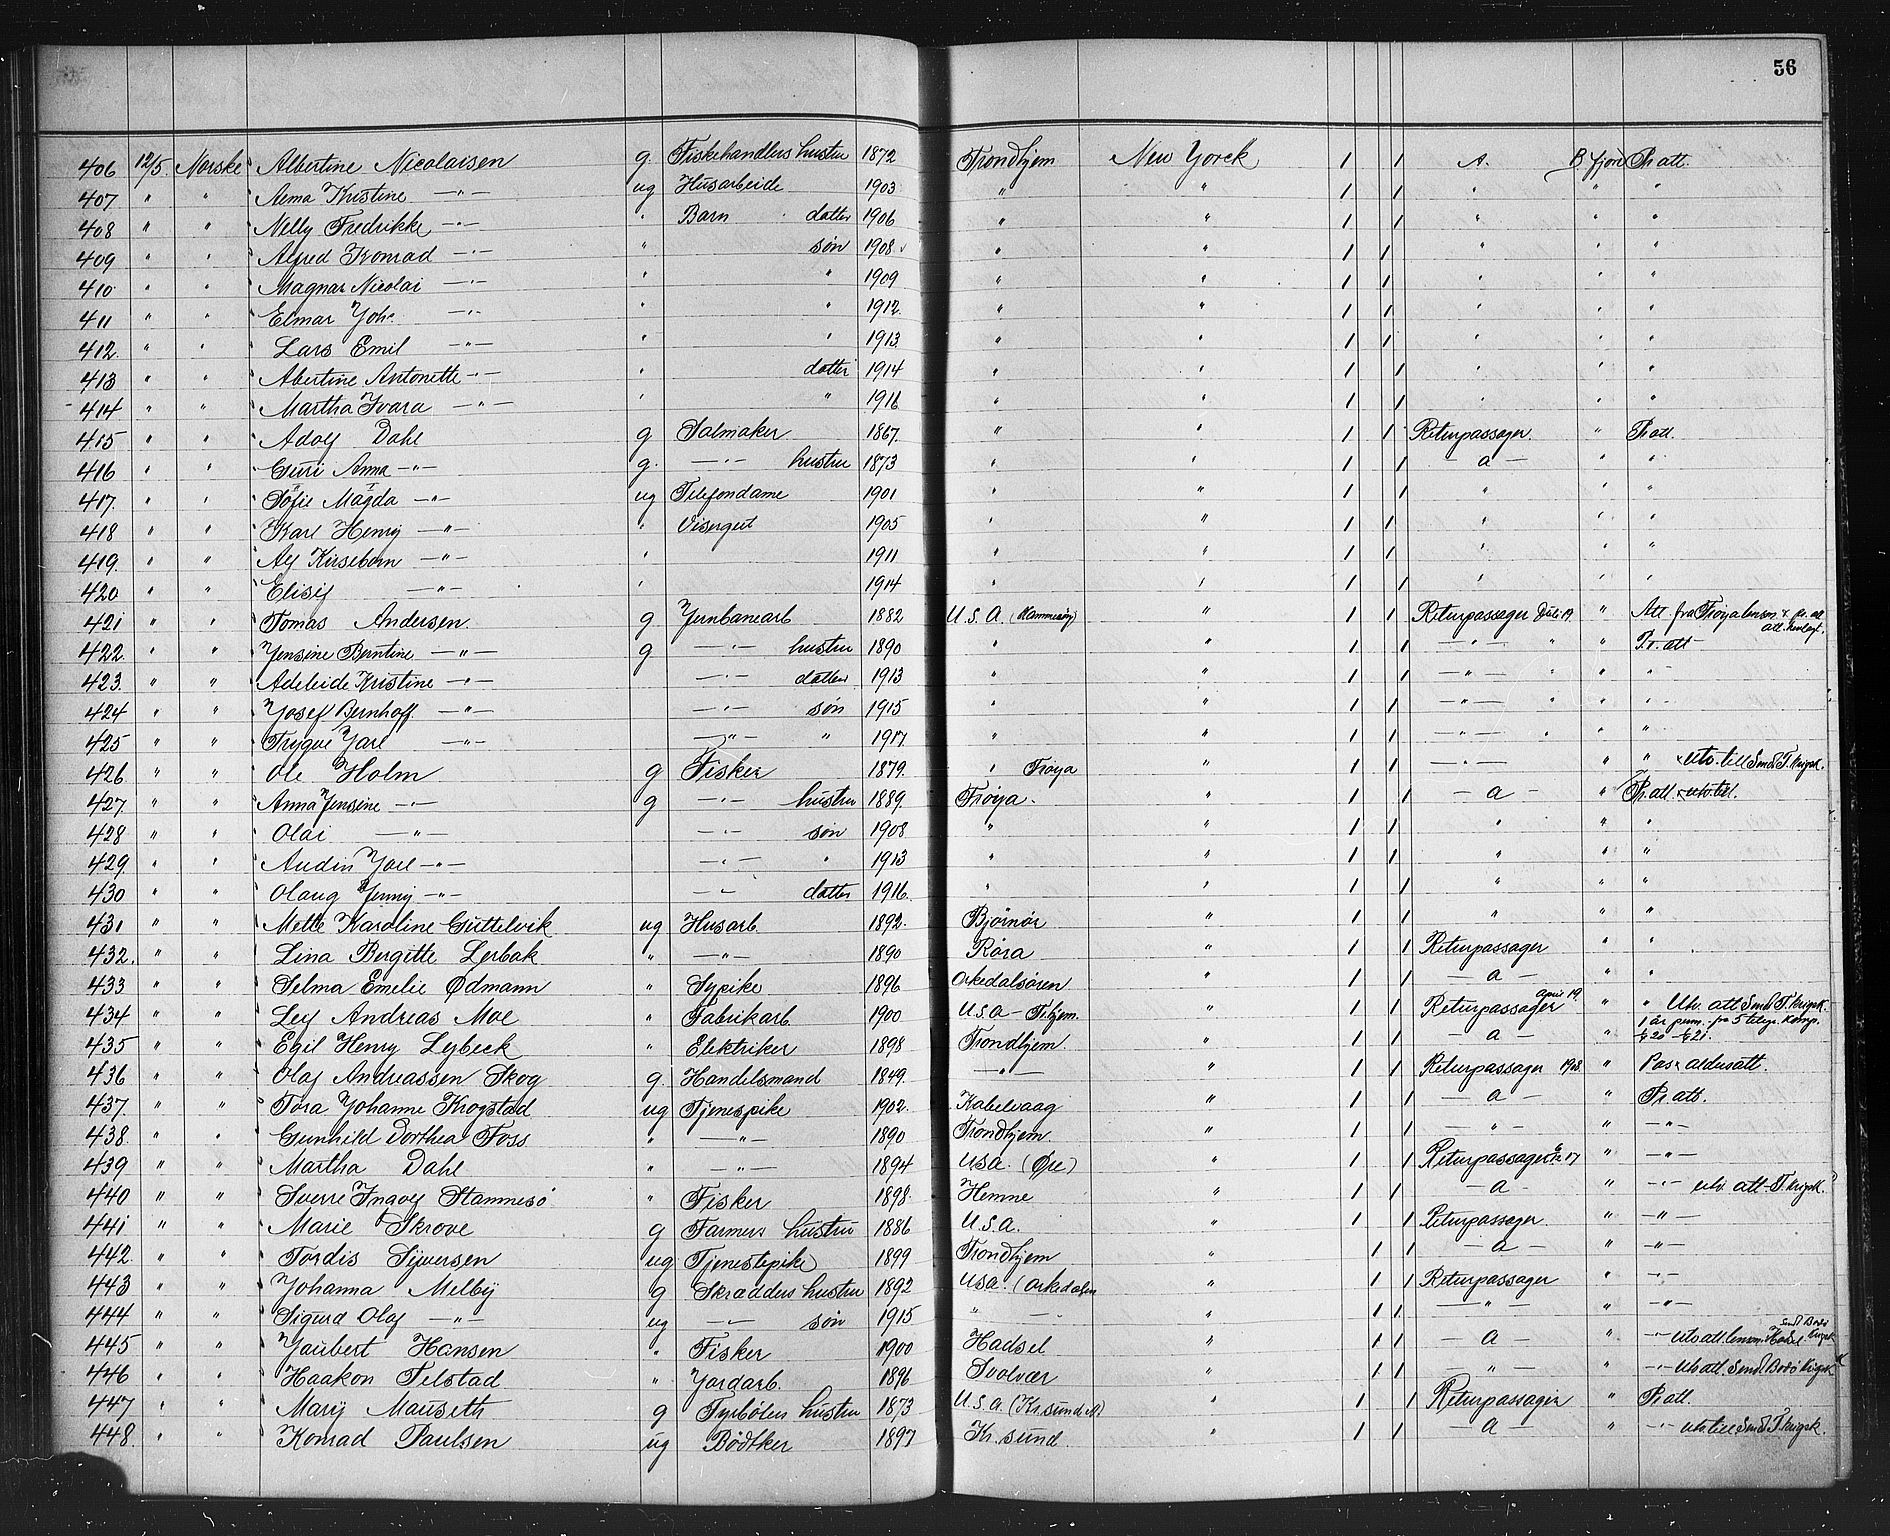 56
406 12/5 Norske Albertine Nicolaisen g. Fiskehandlers hustru 1872 Trondhjem New Yorck 1 1 A. B. fjord Pr att.
407 " " Anna Kristine —"— ug Husarbeide 1903 " " 1 1 " " "
408 " " Nelly Fredrikke —"— " Barn datter 1906 " " 1 1 " " "
409 " " Alfred Konrad —"— " søn 1908 " " 1 1 " " "
410 " " Magnar Nicolai —"— " " 1909 " " 1 1 " " "
411 " " Elmar Joh. —"— " " 1912 " " 1 1 " " "
412. " " Lars Emil —"— " " 1913 " " 1 1 " " "
413 " " Abertine Antonette —"— " datter 1914 " " 1 1 " " "
414 " " Martha Ivara —"— " " 1916 " " 1 1 " " "
415 " " Adolf Dahl g Salmaker 1867. " " 1 1 Returpassager. " Pr att.
416 " " Guri Anna —"— g. —"— hustru 1873 " " 1 1 — a — " "
417. " " Sofie Magda —"— ug Telefondame 1901 " " 1 1 " " "
418 " " Karl Henry —"— " Visergut 1905 " " 1 1 " " "
419. " " Alf Kirsebom —"— " 1911 " " 1 1 " " "
420 " " Elisif —"— " 1914 " " 1 1 " " "
421 " " Tomas Andersen. g Jernbanearb 1882 U.S.A. " 1 1 Returpassager Juli 19. " Att. fra
422. " " Jensine Berntine —"— g —"— hustru 1890 " " 1 1 — " — " " Pr. att
423. " " Adeleide Kristine —"— —"— datter 1913 " " 1 1 — " — " " "
424 " " Josef Bernhoff —"— —"— søn 1915 " " 1 1 — " — " " "
425 " " Trygve Jarl —"— —"— " 1917. " " 1 1 — " — " " "
426 " " Ole Holm g Fisker 1879. " Frøya " 1 1 — " — " " utv. till Send T. krigsk.
427 " " Anna Jensine —"— g —"— hustru 1889. Frøya. " 1 1 — a — " Pr. att. utv. til.
428 " " Olai —"— —"— søn 1908 " " 1 1 " " "
429. " " Audin Jarl —"— —"— " 1913 " " 1 1 " " "
430 " " Olaug Jenny —"— —"— datter 1916. " " 1 1 " " "
431 " " Mette Karoline Guttelvik ug Husarb. 1892. Bjørnør " 1 1 " " "
432. " " Lina Bergitte Lerbak " —"— 1890 Røra " 1 1 Returpassager " "
433 " " Selma Emelie Ødmann " Sypike 1896 Orkedalsøren " 1 1 — a — " "
434 " " Leif Andreas Moe " Fabrikarb. 1900 U.S.A — T.hjem. " 1 1 Returpassager April 19. " " Utv. att Send T. krigsk.
435 " " Egil Henry Lybeck " Elektriker 1898 Trondhjem. " 1 1 — a — " 1 år perm. fra 5 telegr. komp. 1/4 20 – 1/4 21.
436 " " Olaf Andreassen Skog g. Handelsmand 1849. —"— " 1 1 Returpassager 1908. " Pas & aldersatt.
437. " " Tora Johanne Krogstad ug Tjenespike 1902. Kabelvaag " 1 1 — a — " Pr att.
438. " " Gunhild Dorthea Foss " —"— 1890 Trondhjem. " 1 1 — " — " —"—
439 " " Martha Dahl " —"— 1894 USA. (Øre) " 1 1 Returpassager 17 " —"—
440 " " Sverre Ingolf Stamnesø " Fisker 1898. Hemne " 1 1 — a — " —"— utv. att. T. krigsk.
441 " " Marie Skrove g Farmers hustru 1886 U.S.A. " 1 1 Returpassager. " —"—
442. " " Tordis Syversen ug Tjenestepike 1899 Trondhjem " 1 1 — a — " —"—
443 " " Johanna Melby g Skrædders hustru 1892 USA. (Orkedalen " 1 1 Returpassager " —"—
444 " " Sigurd Olaf —"— ug —"— søn 1915 " — " 1 1 — " — " —"—
445 " " Jaubert Hansen " Fisker 1900 Hadsel " 1 1 — a — " —"— utv att. lensm. Hadsel Send Bodø krigsk
446 " " Haakon Telstad " Jordarb. 1896 Svolvær " 1 1 — " — " —"— utv att. Send Bodø krigsk
447 " " Mary Mauseth g Fyrbøters hustru 1873 U.S.A. (Kr.sund N) " 1 1 Returpassager " Pr att.
448. " " Konrad Paulsen ug Bødtker 1897 Kr. sund. " 1 1 — a — " —"— utv. till Send T. krigsk.